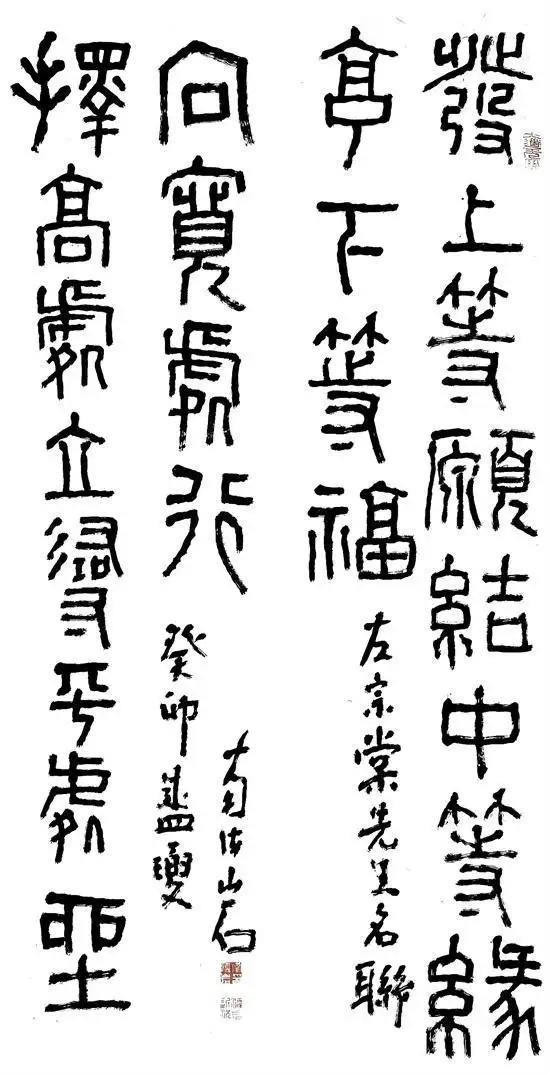 發上等願結中等緣
享下等福
左宗棠先生名聯
擇高處立尋平處坐
向寬處行
癸卯
山石